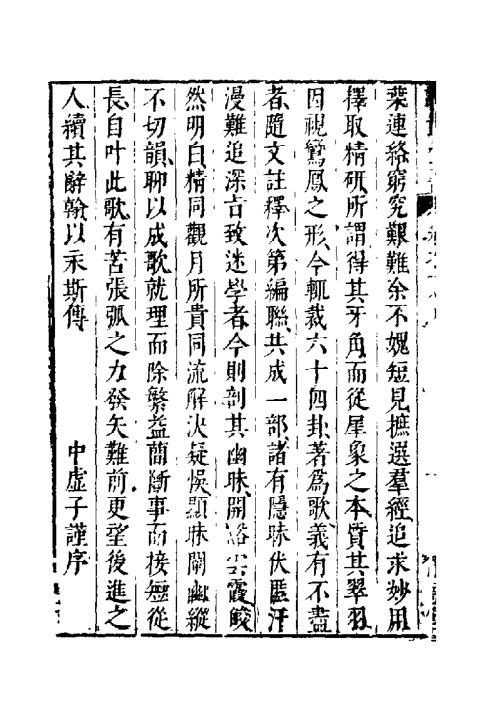 葉連絡窮究艱難余不媿短見摭選羣經追求妙用
擇取精硏所謂得其牙角而從犀象之本質其翠羽
因視鸞鳳之形今輒裁六十四卦著爲歌義有不盡
者隨文註釋次第編聯共成一部諸有隱昧伏匿汗
漫難追深古致迷學者今則剖其幽昧開豁雲霞皎
然明白精同觀月所貴同流解決疑悞顯昧闡幽縱
不切韻聊以成歌就理而除繁益簡斷事而接短從
長自叶此歌有苦張弧之力發矢難前更望後進之
人續其辭翰以永斯傳
中虛子謹序